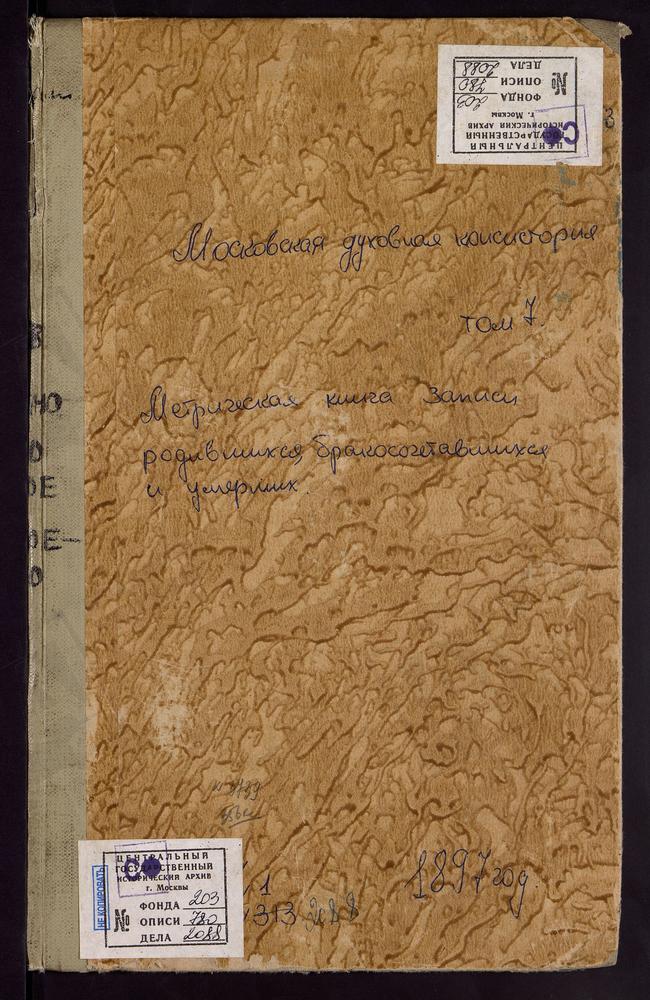 ЦЕНТРАЛЬНЫЙ
ГОСУДАРСТВЕННЫЙ
ИСТОРИЧЕСКИЙ АРХИВ
г. Москвы
ФОНДА 203
№ ОПИСИ 780
ДЕЛА 2088
Московская духовная консистория
том 7.
Метрическая книга записи
родившихся, бракосочетавшихся
и умерших.
1897 год.
НЕ КОПИРОВАТЬ
ЦЕНТРАЛЬНЫЙ
ГОСУДАРСТВЕННЫЙ
ИСТОРИЧЕСКИЙ АРХИВ
г. Москвы
ФОНДА 203
№ ОПИСИ 780
ДЕЛА 2088
1
1313